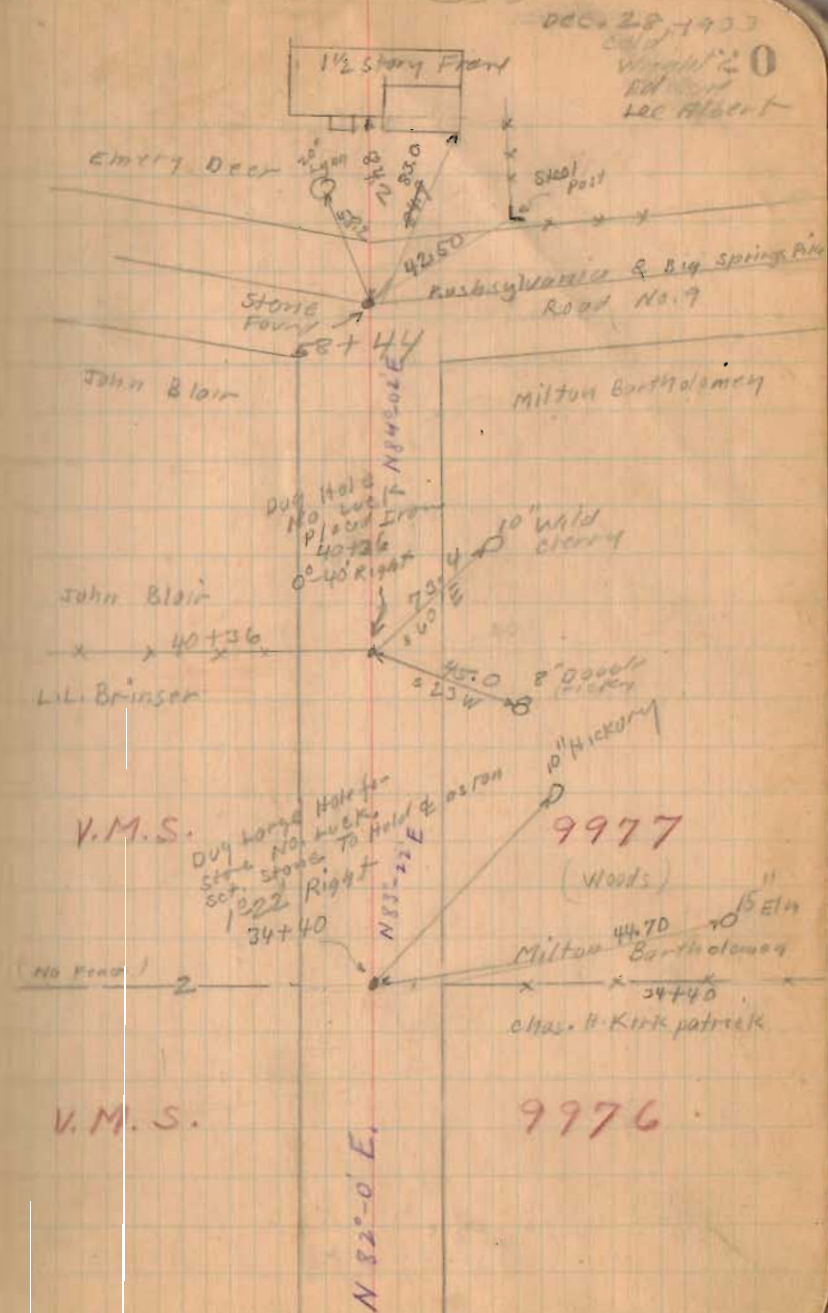 Dec. 28, 1933
Cold
0
Lee Albert
1½ Story Frame
Emery Deer
20"
58.2
84.2
83.0
42.50
Steel
Post
Rushsylvania & Big Springs Pike
Road No. 9
Stone
Found
58+44
John Blair
Milton Bartholomew
N84°-02'E
Dug Hole
No Luck
Placed Iron
40+36
0°-40' Right
10" Wild
Cherry
73.4
S 60 E
John Blair
40+36
45.0
S 23 W
8" Double
L.L. Brinser
10" Hickory
V.M.S. 9977
(Woods)
Dug Large Hole for
Stone No. Luck.
Set. Stone To Hold &
1°-22' Right
34+40
N83°-22'E
15"
Elm
44.70
Milton Bartholomew
(No Fence)
34+40
Chas. H. Kirkpatrick
V.M.S. 9976
N 82°-0' E.